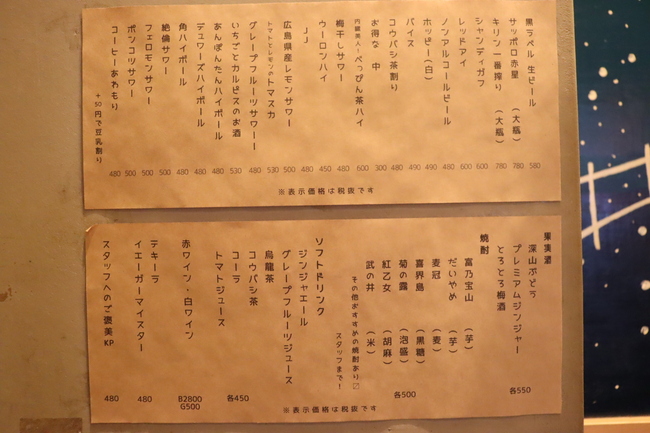 黒ラベル 生ビール 580
サッポロ赤星 (大瓶) 780
キリン一番搾り (大瓶) 780
シャンディガフ 480
レッドアイ 480
ノンアルコールビール 480
ホッピー(白) 490
バイス 490
コウバシ茶割り 480
お得な 中 300
べっぴん茶ハイ 600
梅干しサワー 480
ウーロンハイ 450
JJ 480
広島県産レモンサワー 500
トマトとレモンのトマスカ 530
グレープフルーツサワー 480
いちごとカルピスのお酒 530
あんぽんたんハイボール 480
デュワーズハイボール 480
角ハイボール 480
絶倫サワー 500
フェロモンサワー 500
ポンコツサワー 500
コーヒーあわもり 480
+50円で豆乳割り
※表示価格は税抜です
果実酒
深山ぶどう
プレミアムジンジャー
とろとろ梅酒
各550
焼酎
富乃宝山 (芋)
だいやめ (芋)
麦冠 (麦)
喜界島 (黒糖)
菊の露 (泡盛)
紅乙女 (胡麻)
武の井 (米)
各500
その他おすすめの焼酎あり〼
スタッフまで!
ソフトドリンク
ジンジャエール
グレープフルーツジュース
烏龍茶
コウバシ茶
コーラ
トマトジュース
各450
赤ワイン・白ワイン
B2800
G500
テキーラ
イエーガーマイスター 480
スタッフへのご褒美KP 480
※表示価格は税抜です